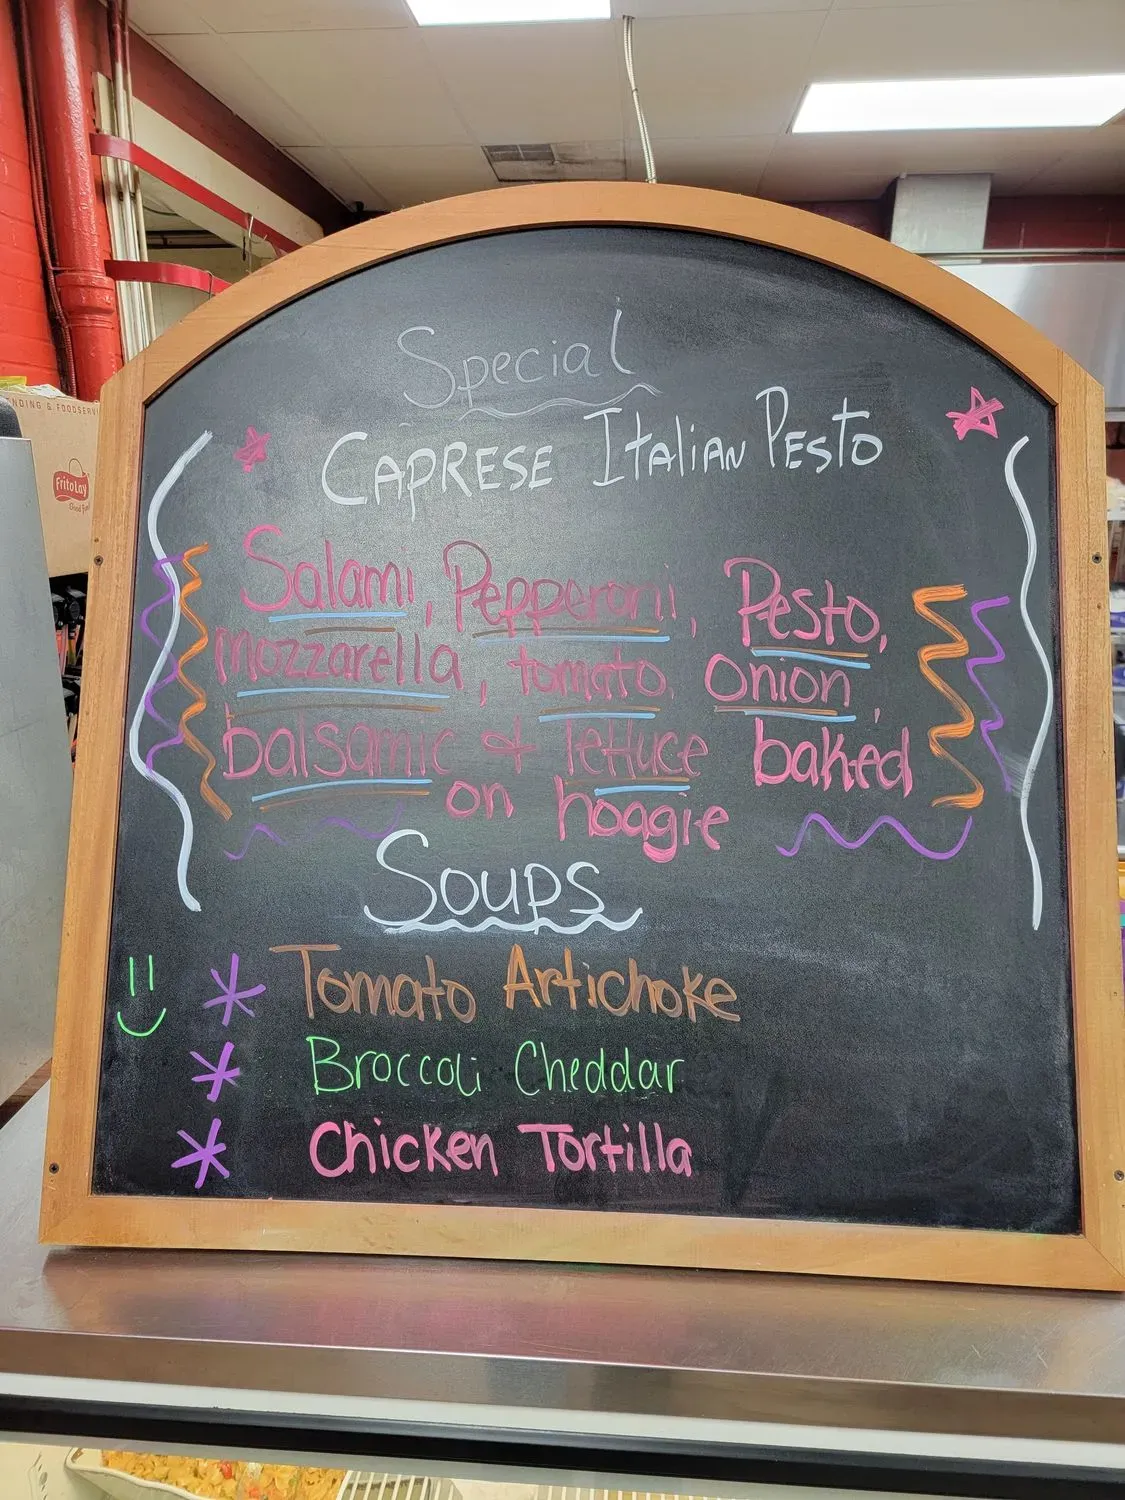 Special
CAPRESE ITALIAN PESTO
Salami, Pepperoni, Pesto,
mozzarella, tomato, onion,
balsamic & lettuce baked
on hoagie
Soups
Tomato Artichoke
Broccoli Cheddar
Chicken Tortilla
NDING & FOODSERV
Frito Lay